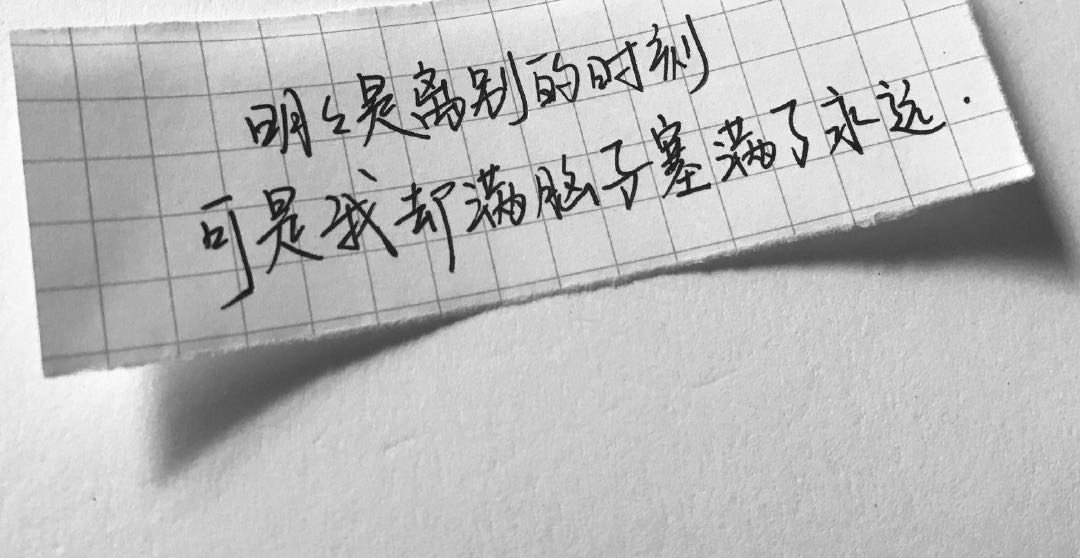 明々是离别的时刻
可是我却满脑子塞满了永远.